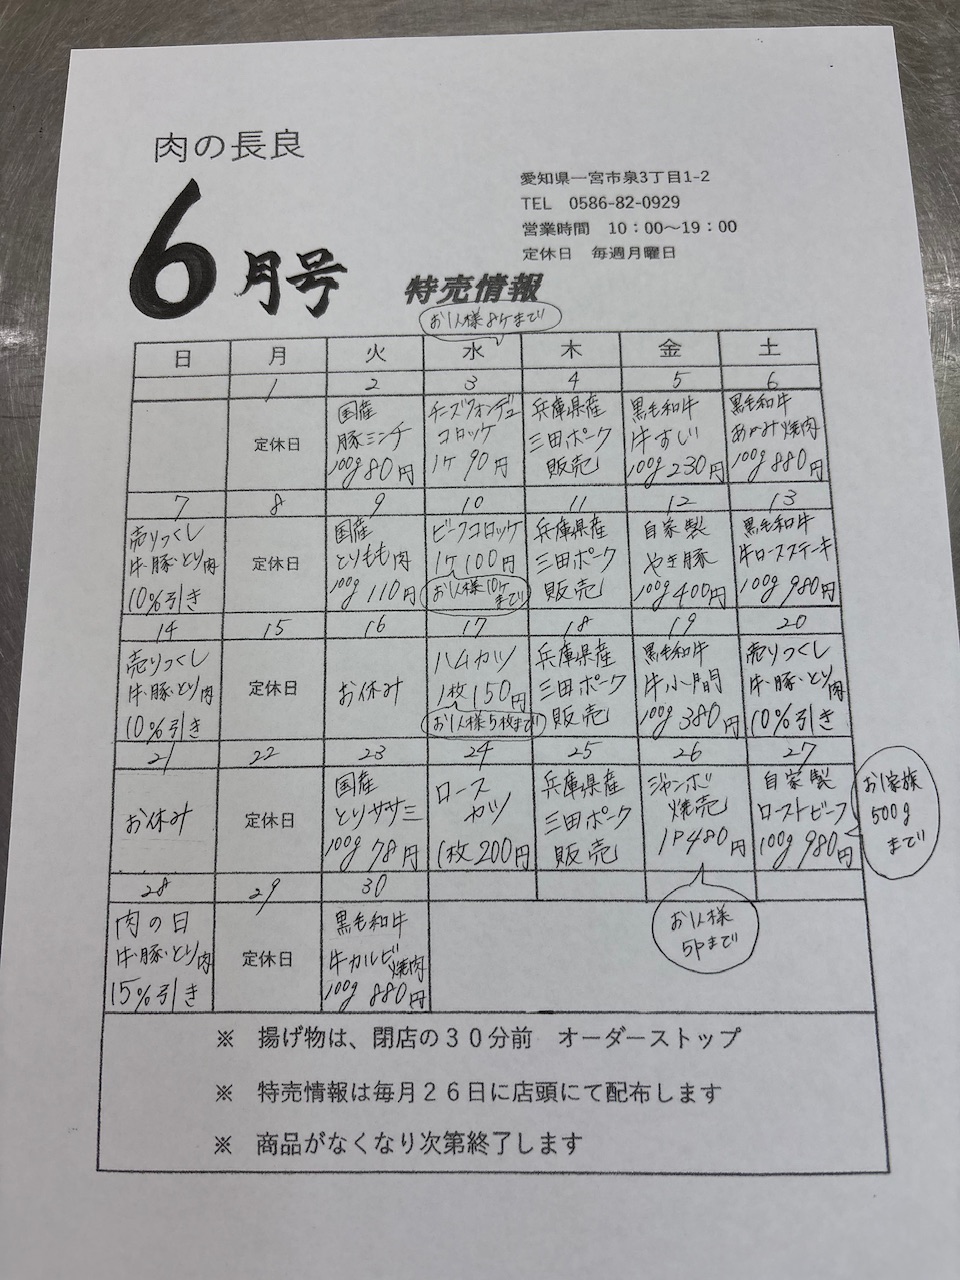 肉の長良
愛知県一宮市泉3丁目1-2
TEL 0586-82-0929
営業時間 10：00～19：00
定休日 毎週月曜日
6月号
特売情報
お1人様8ケまで
日 月 火 水 木 金 土
1 2 3 4 5 6
定休日
国産
豚ミンチ
100g 80円
チーズフォンデュ
コロッケ
1ケ 90円
兵庫県産
三田ポーク
販売
黒毛和牛
牛すじ
100g 230円
黒毛和牛
あかみ焼肉
100g 880円
7 8 9 10 11 12 13
売りつくし
牛・豚・とり肉
10%引き
定休日
国産
とりもも肉
100g 110円
ビーフコロッケ
1ケ100円
お1人様10ケ
まで
兵庫県産
三田ポーク
販売
自家製
やき豚
100g 400円
黒毛和牛
牛ロースステーキ
100g 980円
14 15 16 17 18 19 20
売りつくし
牛・豚・とり肉
10%引き
定休日
お休み
ハムカツ
1枚150円
お1人様5枚まで
兵庫県産
三田ポーク
販売
黒毛和牛
牛小間
100g 380円
売りつくし
牛・豚・とり肉
10%引き
21 22 23 24 25 26 27
お休み
定休日
国産
とりササミ
100g 78円
ロース
カツ
1枚200円
兵庫県産
三田ポーク
販売
ジャンボ
焼売
1P480円
お1人様
5Pまで
自家製
ローストビーフ
100g 980円
お1家族
500g
まで
28 29 30
肉の日
牛・豚・とり肉
15%引き
定休日
黒毛和牛
牛カルビ焼肉
100g 880円
※ 揚げ物は、閉店の３０分前 オーダーストップ
※ 特売情報は毎月２６日に店頭にて配布します
※ 商品がなくなり次第終了します